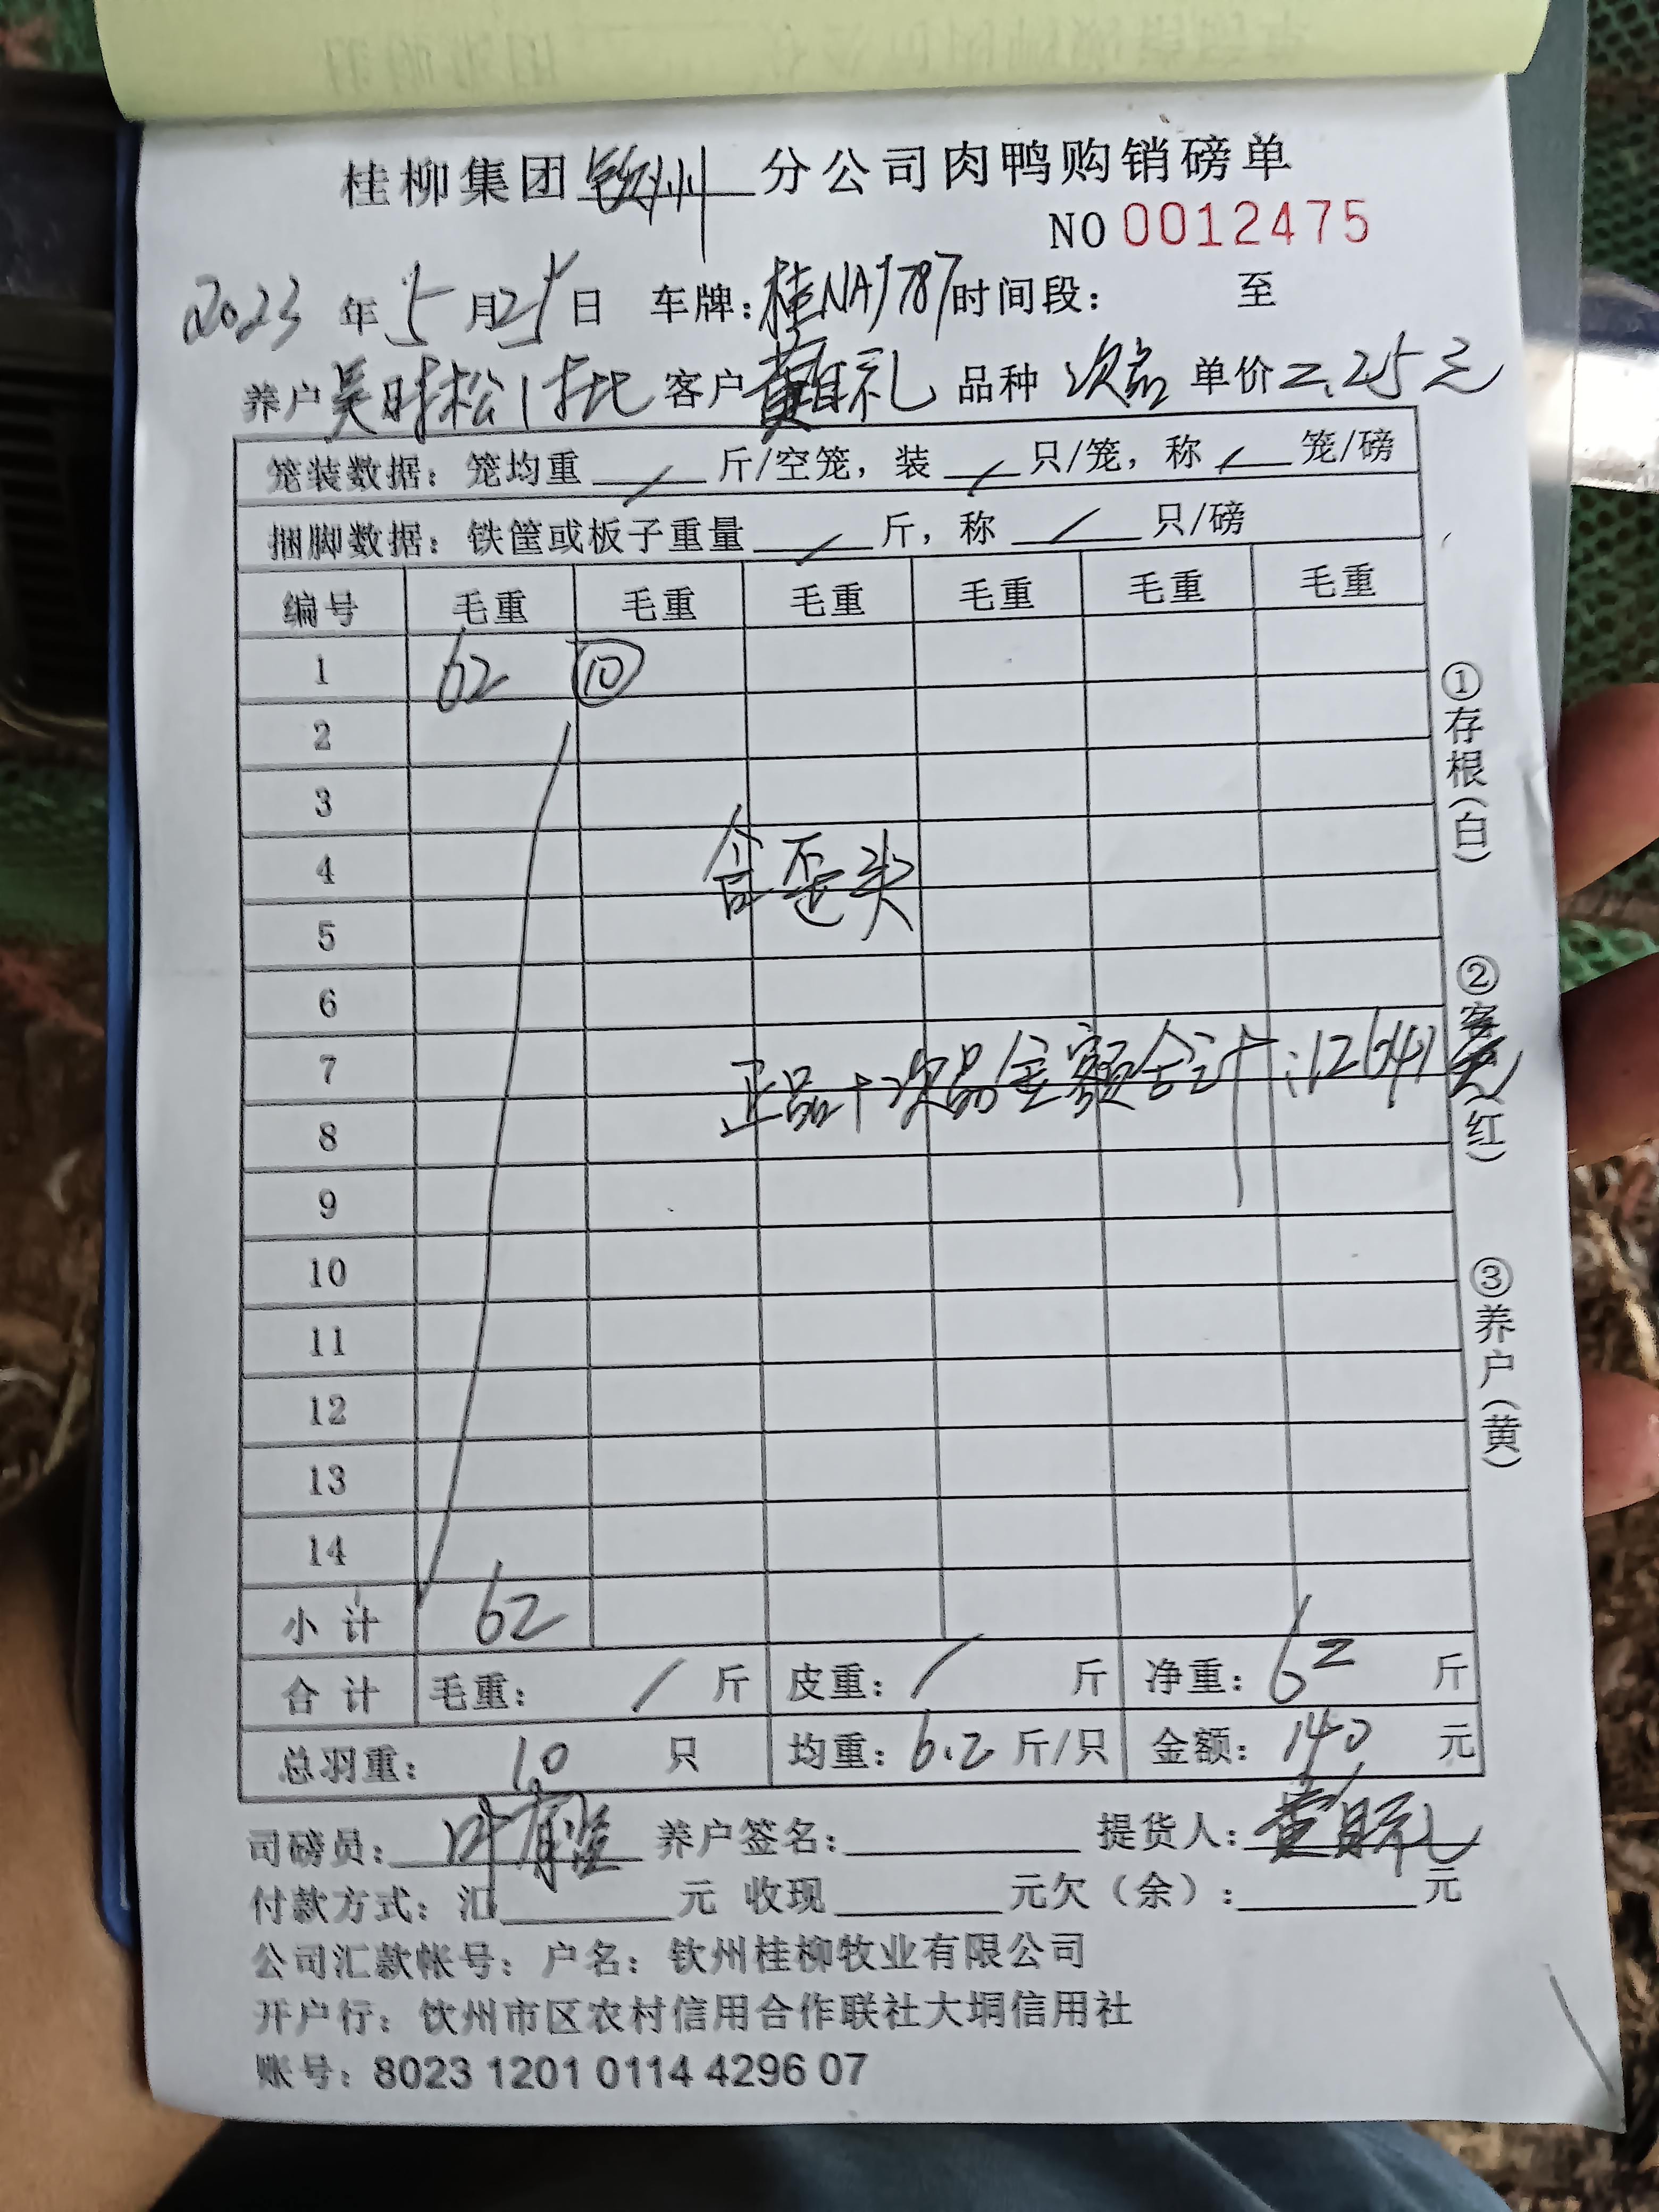 桂柳集团钦州分公司肉鸭购销磅单
NO 0012475
2023年5月25日 车牌:桂NA9787时间段: 至
养户吴时松1批 客户黄自礼 品种 次品 单价2.25元
笼装数据: 笼均重 / 斤/空笼, 装 / 只/笼, 称 / 笼/磅
捆脚数据: 铁筐或板子重量 / 斤, 称 / 只/磅
编号 毛重 毛重 毛重 毛重 毛重 毛重
1 62 ⑩
2
3
4 含歪头
5
6
7 正品+次品金额合计:12641元
8
9
10
11
12
13
14
小计 62
合计 毛重: / 斤 皮重: / 斤 净重: 62 斤
总羽重: 10 只 均重: 6.2 斤/只 金额: 140 元
司磅员: 叶 养户签名: 提货人: 黄自礼
付款方式: 汇 元 收现 元欠(余): 元
公司汇款帐号: 户名: 钦州桂柳牧业有限公司
开户行: 钦州市区农村信用合作联社大垌信用社
账号: 8023 1201 0114 4296 07
①存根(白)
②客(红)
③养户(黄)